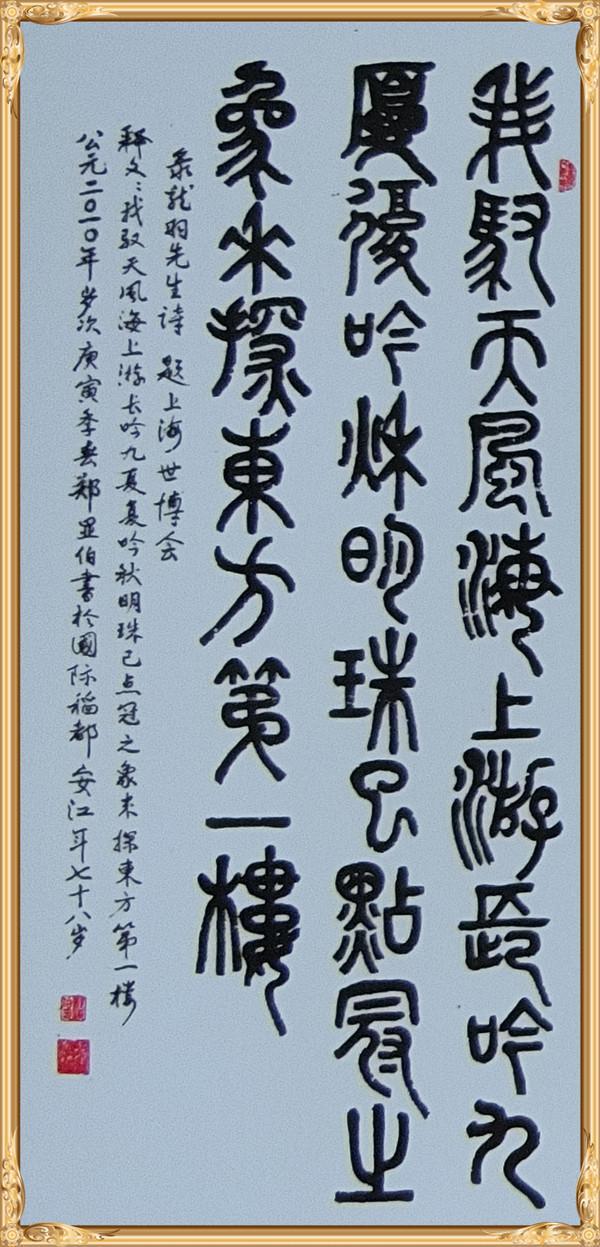 我馭天風海上游長吟九
夏復吟秌明珠已點冠之
象來探東方第一樓
录龙羽先生詩 题上海世博会
释文：我驭天风海上游长吟九夏复吟秋明珠已点冠之象来探東方第一楼
公元二〇一〇年岁次庚寅季春郑显伯書於國际稻都安江年七十八岁